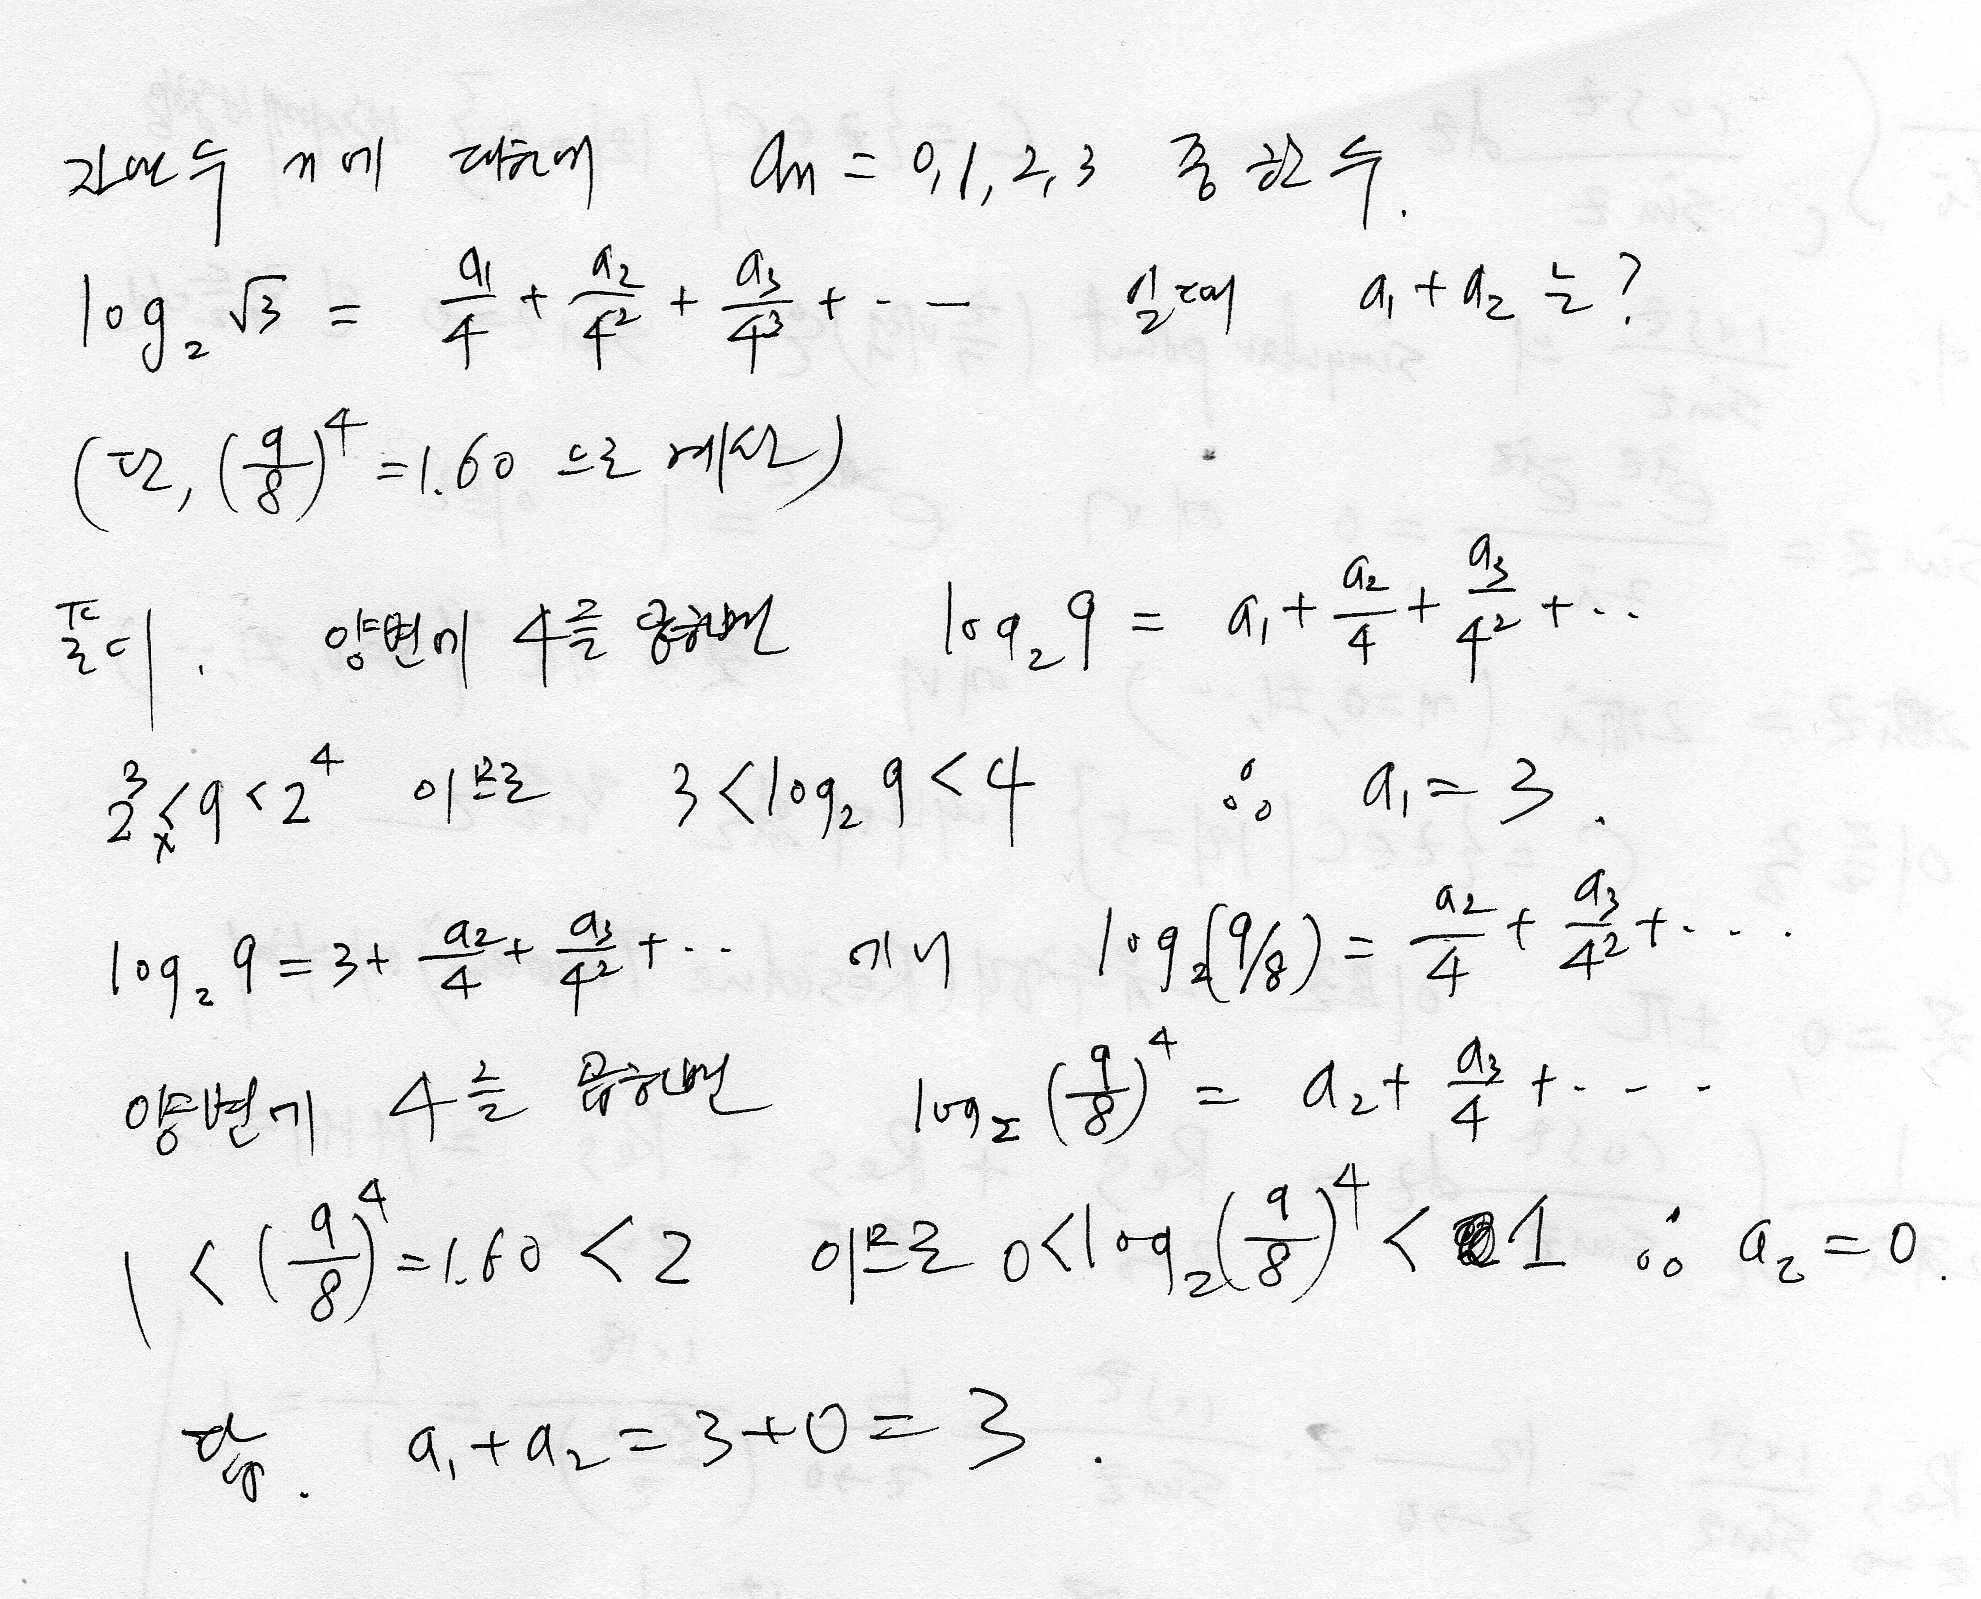 자연수 n에 대하여 aₙ = 0,1,2,3 중 한 수.
log₂√3 = a₁/4 + a₂/4² + a₃/4³ + ‐ ‐ 일때 a₁+a₂는?
(단, (9/8)⁴ =1.60 으로 계산)
풀이. 양변에 4를 곱하면 log₂9 = a₁+ a₂/4 + a₃/4² + ‥
2³<9<2⁴ 이므로 3<log₂9<4 ∴ a₁=3.
log₂9=3+ a₂/4 + a₃/4² + ‥ 에서 log₂(9/8) = a₂/4 + a₃/4² + ...
양변에 4를 곱하면 log₂(9/8)⁴ = a₂+ a₃/4 + ...
1<(9/8)⁴=1.60<2 이므로 0<log₂(9/8)⁴<1 ∴ a₂=0.
답. a₁+a₂=3+0=3.